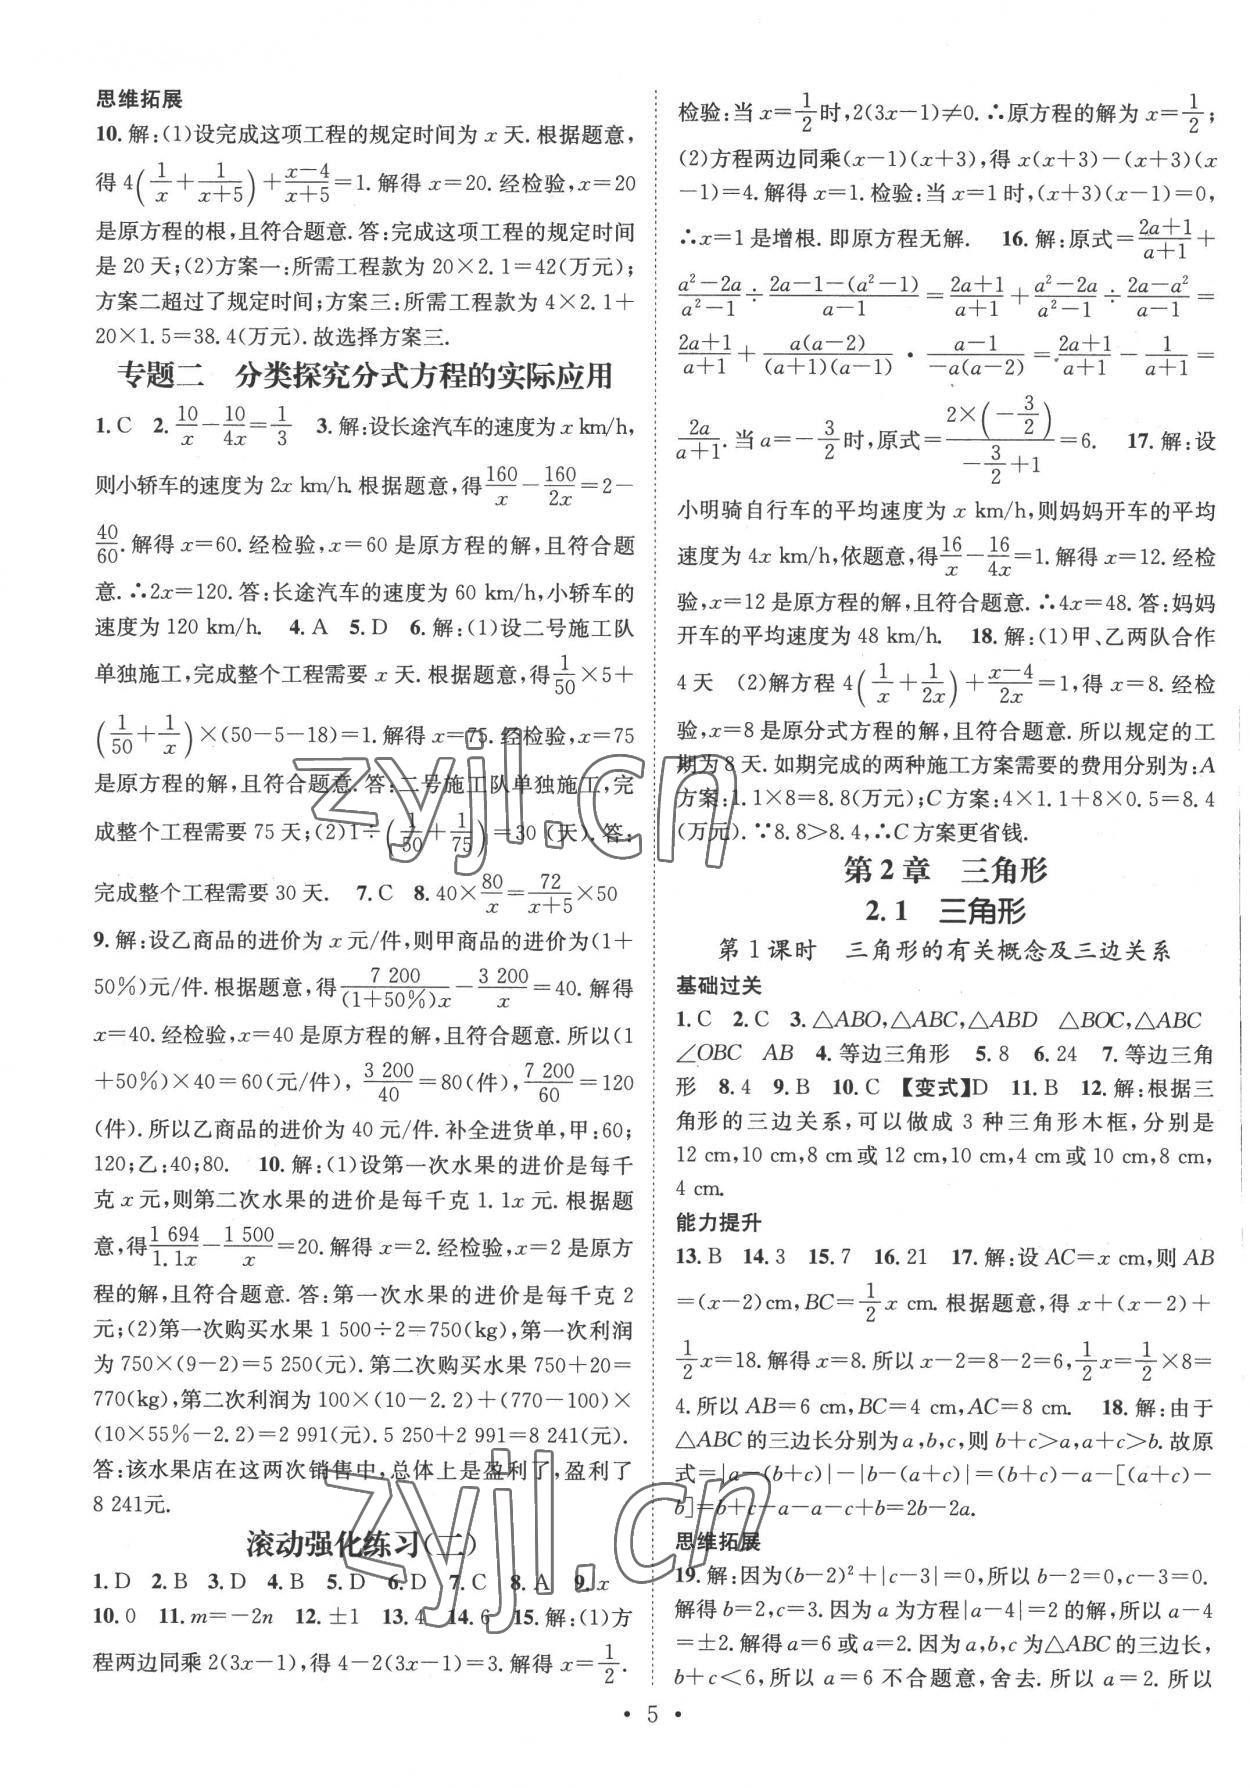 思维拓展
10. 解:(1)设完成这项工程的规定时间为 x 天. 根据题意,
得 4(1/x+1/(x+5))+(x-4)/(x+5)=1. 解得 x=20. 经检验,x=20
是原方程的根,且符合题意. 答:完成这项工程的规定时间
是 20 天;(2)方案一:所需工程款为 20×2.1=42(万元);
方案二超过了规定时间;方案三:所需工程款为 4×2.1+
20×1.5=38.4(万元). 故选择方案三.
专题二 分类探究分式方程的实际应用
1. C 2. 10/x-10/4x=1/3 3. 解:设长途汽车的速度为 x km/h,
则小轿车的速度为 2x km/h. 根据题意,得160/x-160/2x=2-
40/60. 解得 x=60. 经检验,x=60 是原方程的解,且符合题
意. ∴2x=120. 答:长途汽车的速度为 60 km/h,小轿车的
速度为 120 km/h. 4. A 5. D 6. 解:(1)设二号施工队
单独施工,完成整个工程需要 x 天. 根据题意,得1/50×5+
(1/50+1/x)×(50-5-18)=1. 解得 x=75. 经检验,x=75
是原方程的解,且符合题意. 答:二号施工队单独施工,完
成整个工程需要 75 天;(2)1÷(1/50+1/75)=30(天). 答:
完成整个工程需要 30 天. 7. C 8. 40×80/x=72/(x+5)×50
9. 解:设乙商品的进价为 x 元/件,则甲商品的进价为(1+
50%)元/件. 根据题意,得7 200/(1+50%)x-3 200/x=40. 解得
x=40. 经检验,x=40 是原方程的解,且符合题意. 所以(1
+50%)×40=60(元/件),3 200/40=80(件),7 200/60=120
(件). 所以乙商品的进价为 40 元/件. 补全进货单,甲:60;
120;乙:40;80. 10. 解:(1)设第一次水果的进价是每千
克 x 元,则第二次水果的进价是每千克 1.1x 元. 根据题
意,得1 694/1.1x-1 500/x=20. 解得 x=2. 经检验,x=2 是原方
程的解,且符合题意. 答:第一次水果的进价是每千克 2
元;(2)第一次购买水果 1 500÷2=750(kg),第一次利润
为 750×(9-2)=5 250(元). 第二次购买水果 750+20=
770(kg),第二次利润为 100×(10-2.2)+(770-100)×
(10×55%-2.2)=2 991(元). 5 250+2 991=8 241(元).
答:该水果店在这两次销售中,总体上是盈利了,盈利了
8 241元.
滚动强化练习(二)
1. D 2. B 3. D 4. B 5. D 6. D 7. C 8. A 9. x
10. 0 11. m=-2n 12. ±1 13. 4 14. 6 15. 解:(1)方
程两边同乘 2(3x-1),得 4-2(3x-1)=3. 解得 x=1/2.
检验:当 x=1/2时,2(3x-1)≠0. ∴原方程的解为 x=1/2;
(2)方程两边同乘(x-1)(x+3),得 x(x+3)-(x+3)(x
-1)=4. 解得 x=1. 检验:当 x=1 时,(x+3)(x-1)=0,
∴x=1 是增根. 即原方程无解. 16. 解:原式=(2a+1)/(a+1)+
(a²-2a)/(a²-1)÷(2a-1-(a²-1))/(a-1)=(2a+1)/(a+1)+(a²-2a)/(a²-1)÷(2a-a²)/(a-1)=
(2a+1)/(a+1)+a(a-2)/(a+1)(a-1)·(a-1)/-a(a-2)=(2a+1)/(a+1)-1/(a+1)=
2a/(a+1). 当 a=-3/2时,原式=2×(-3/2)/(-3/2+1)=6. 17. 解:设
小明骑自行车的平均速度为 x km/h,则妈妈开车的平均
速度为 4x km/h,依题意,得16/x-16/4x=1. 解得 x=12. 经检
验,x=12 是原方程的解,且符合题意. ∴4x=48. 答:妈妈
开车的平均速度为 48 km/h. 18. 解:(1)甲、乙两队合作
4 天 (2)解方程 4(1/x+1/2x)+(x-4)/2x=1,得 x=8. 经检
验,x=8 是原分式方程的解,且符合题意. 所以规定的工
期为 8 天. 如期完成的两种施工方案需要的费用分别为:A
方案:1.1×8=8.8(万元);C 方案:4×1.1+8×0.5=8.4
(万元). ∵8.8>8.4,∴C 方案更省钱.
第 2 章 三角形
2.1 三角形
第 1 课时 三角形的有关概念及三边关系
基础过关
1. C 2. C 3. △ABO,△ABC,△ABD △BOC,△ABC
∠OBC AB 4. 等边三角形 5. 8 6. 24 7. 等边三角
形 8. 4 9. B 10. C 【变式】D 11. B 12. 解:根据三
角形的三边关系,可以做成 3 种三角形木框,分别是
12 cm,10 cm,8 cm 或 12 cm,10 cm,4 cm 或 10 cm,8 cm,
4 cm.
能力提升
13. B 14. 3 15. 7 16. 21 17. 解:设 AC=x cm,则 AB
=(x-2)cm,BC=1/2x cm. 根据题意,得 x+(x-2)+
1/2x=18. 解得 x=8. 所以 x-2=8-2=6,1/2x=1/2×8=
4. 所以 AB=6 cm,BC=4 cm,AC=8 cm. 18. 解:由于
△ABC 的三边长分别为 a,b,c,则 b+c>a,a+c>b. 故原
式=|a-(b+c)|-|b-(a+c)|=(b+c)-a-[(a+c)-
b]=b+c-a-a-c+b=2b-2a.
思维拓展
19. 解:因为(b-2)²+|c-3|=0,所以 b-2=0,c-3=0.
解得 b=2,c=3. 因为 a 为方程|a-4|=2 的解,所以 a-4
=±2. 解得 a=6 或 a=2. 因为 a,b,c 为△ABC 的三边长,
b+c<6,所以 a=6 不合题意,舍去. 所以 a=2. 所以
• 5 •
zyjl.cn
zyjl.cn